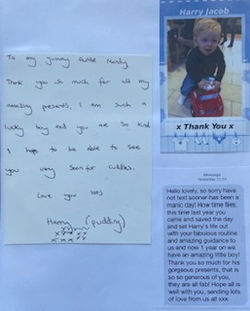 To my yummy Auntie Mandy
Thank you so much for all my
amazing presents, I am such a
lucky boy and you are so kind
I hope to be able to see
you very soon for cuddles.
Love you lots
Harry (pudding)
Harry Jacob
x Thank You x
iMessage
Hello lovely, so sorry have
not text sooner has been a
manic day! How time flies,
this time last year you
came and saved the day
and set Harry's life out
with your fabulous routine
and amazing guidance to
us and now 1 year on we
have an amazing little boy!
Thank you so much for his
gorgeous presents, that is
so so generous of you,
they are all fab! Hope all is
well with you, sending lots
of love from us all xxx